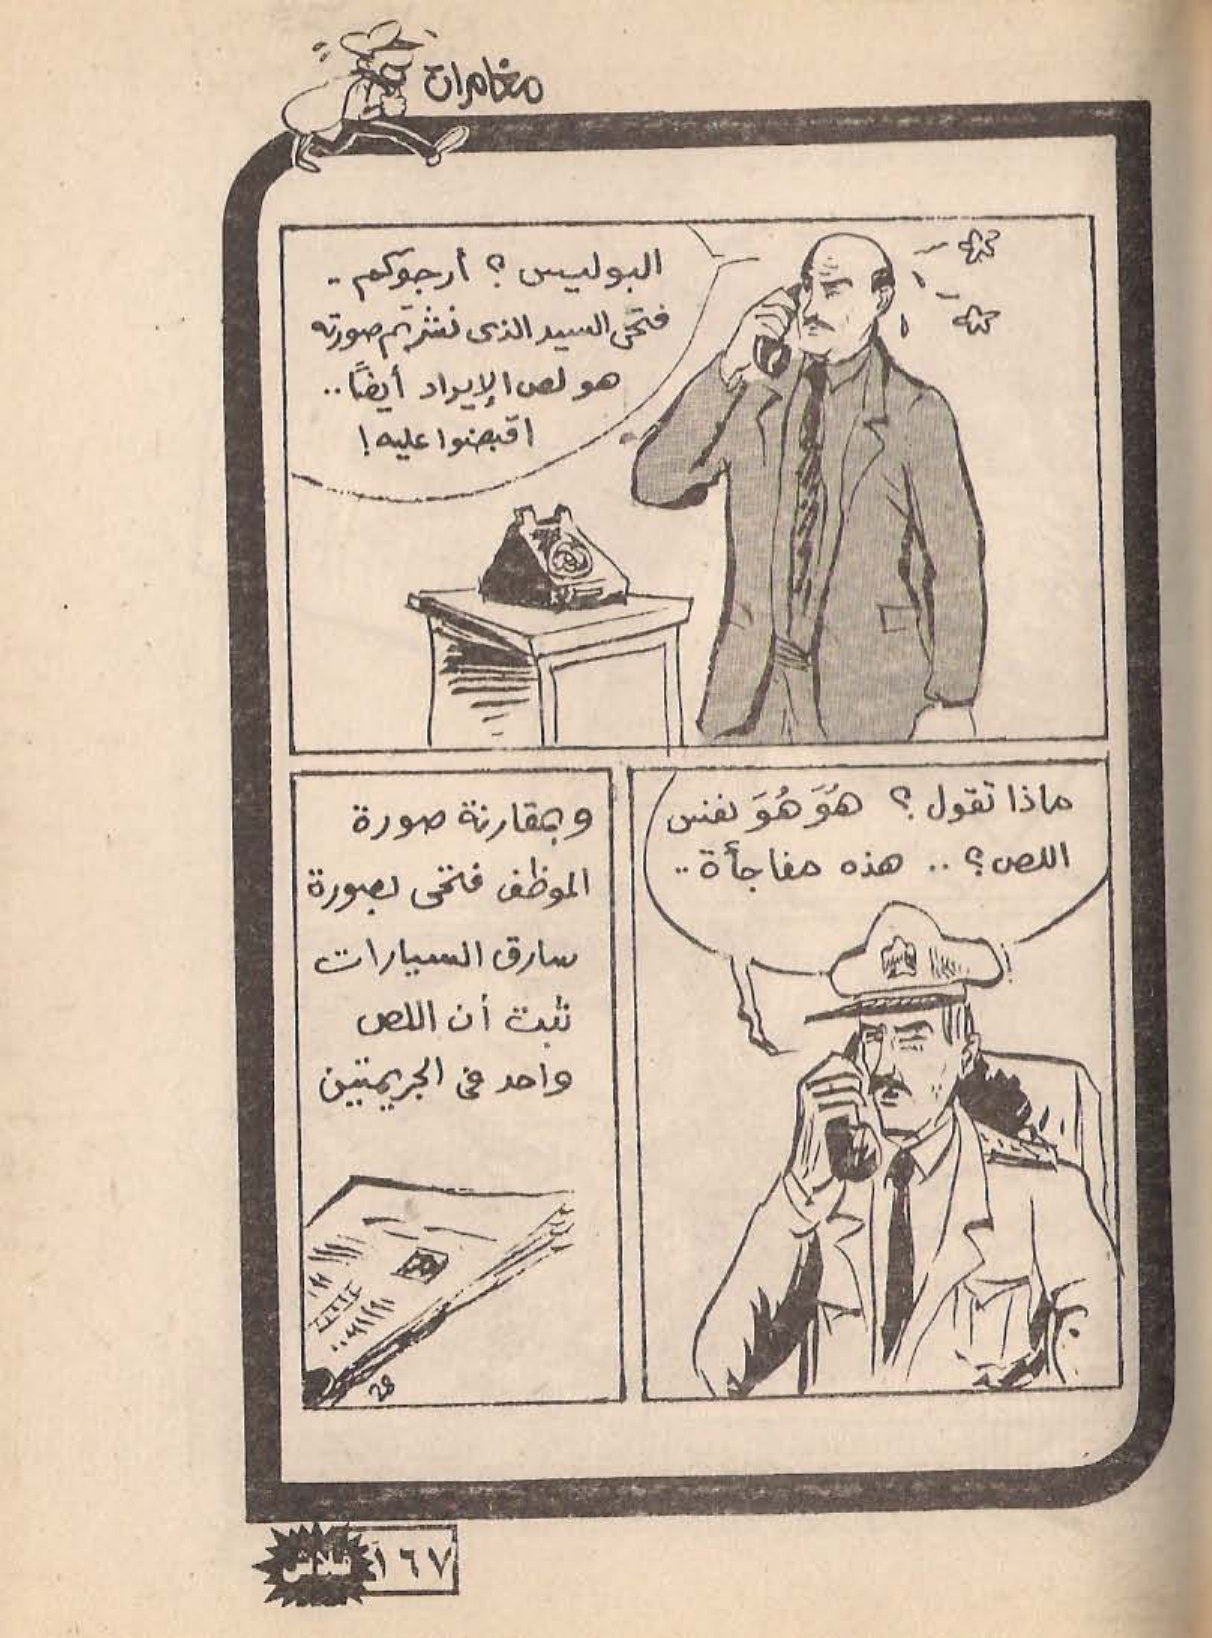 مغامرات
البوليس ؟ أرجوكم ..
فتحى السيد الذى نشرتم صورته
هو لص الإيراد أيضًا ..
اقبضوا عليه !
ماذا تقول ؟ هُوَ هُوَ نفس
اللص ؟ .. هذه مفاجأة ..
وبمقارنة صورة
الموظف فتحى بصورة
سارق السيارات
ثبت أن اللص
واحد فى الجريمتين
28
١٦٧
فلاش